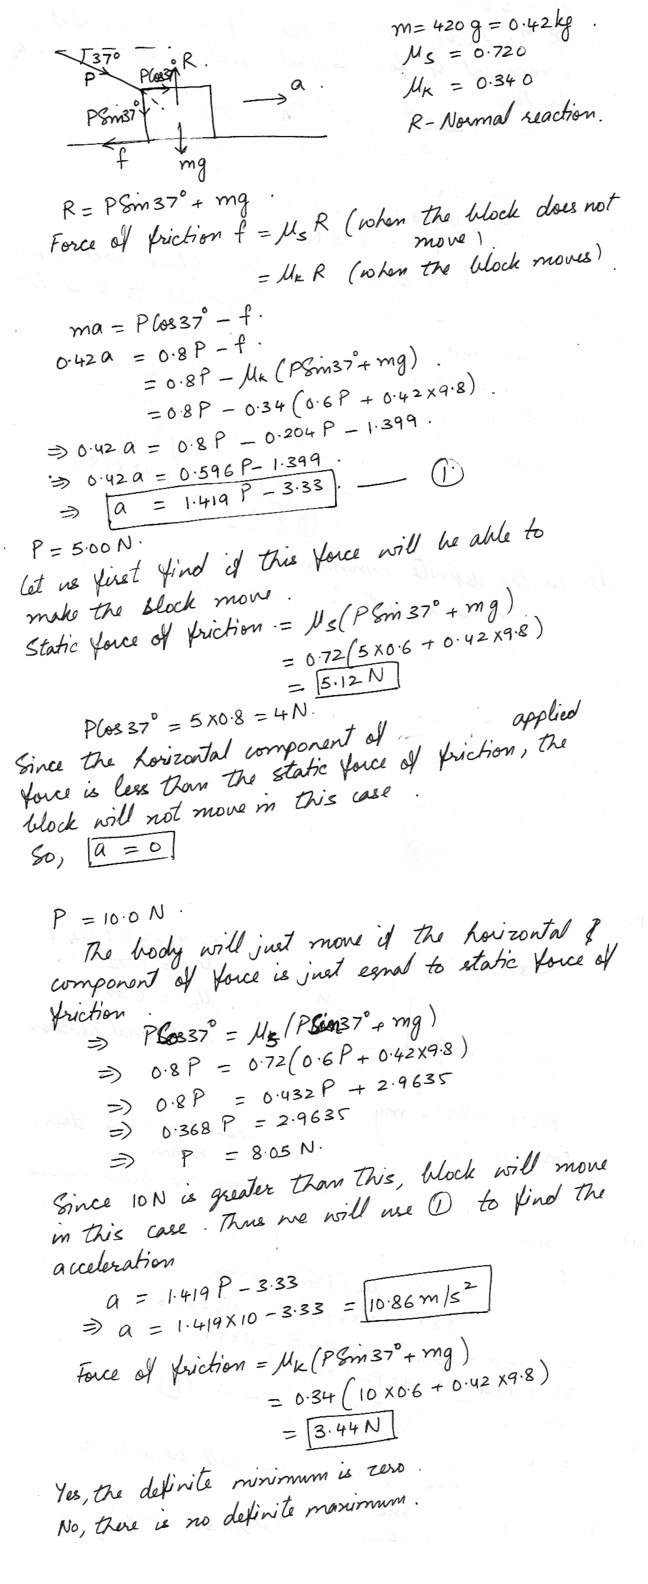 m = 420 g = 0.42 kg .
μs = 0.720
μk = 0.340
R - Normal reaction.
37°
P
Pcos37°
R .
a
PSin37°
f
mg
R = PSin37° + mg .
Force of friction f = μs R (when the block does not move).
= μk R (when the block moves).
ma = Pcos37° - f .
0.42a = 0.8P - f .
= 0.8P - μk (PSin37° + mg) .
= 0.8P - 0.34 (0.6P + 0.42×9.8) .
⇒ 0.42 a = 0.8P - 0.204 P - 1.399 .
⇒ 0.42 a = 0.596P - 1.399 .
⇒ a = 1.419 P - 3.33 . ___ ①
P = 5.00 N .
Let us first find if this force will be able to
make the block move .
Static force of friction = μs(PSin37° + mg)
= 0.72(5×0.6 + 0.42×9.8)
= 5.12 N
Pcos37° = 5×0.8 = 4N .
Since the horizontal component of applied
force is less than the static force of friction, the
block will not move in this case .
So, a = 0
P = 10.0 N .
The body will just move if the horizontal
component of force is just equal to static force of
friction .
⇒ Pcos37° = μs (PSin37° + mg)
⇒ 0.8P = 0.72(0.6P + 0.42×9.8)
⇒ 0.8P = 0.432P + 2.9635
⇒ 0.368 P = 2.9635
⇒ P = 8.05 N .
Since 10N is greater than this, block will move
in this case . Thus we will use ① to find the
acceleration
a = 1.419 P - 3.33
⇒ a = 1.419×10 - 3.33 = 10.86 m/s²
Force of friction = μk(PSin37° + mg)
= 0.34 (10×0.6 + 0.42×9.8)
= 3.44 N
Yes, the definite minimum is zero .
No, there is no definite maximum .